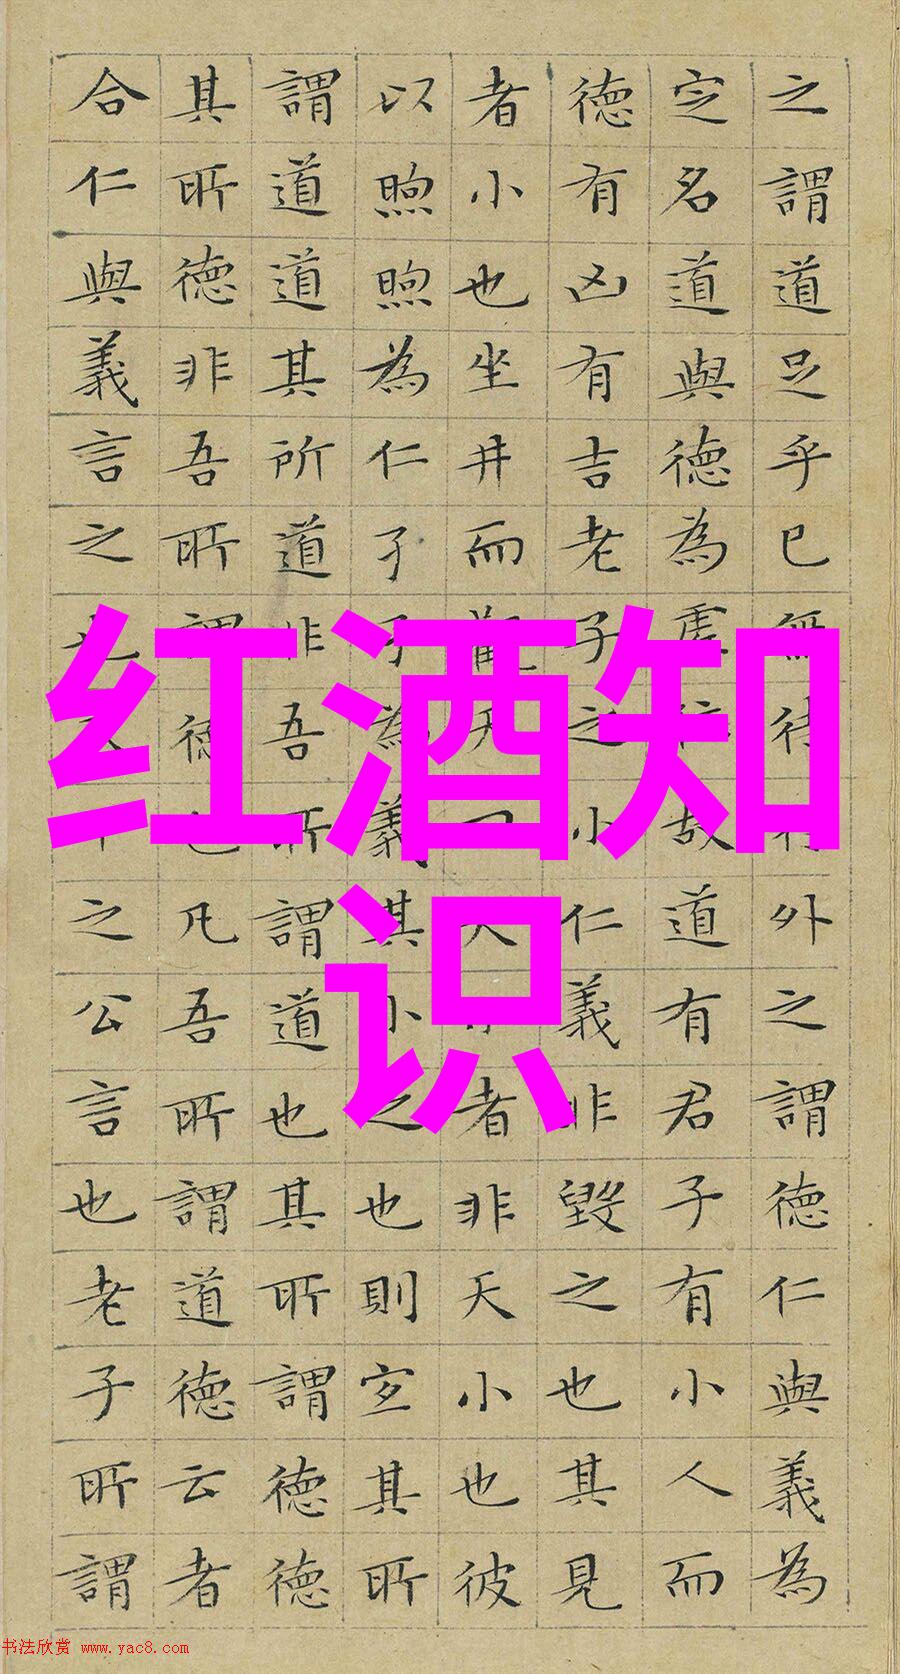 之謂道足乎已無待於外之謂德仁與義為
定名道與德為虛位故道有君子有小人而
德有凶有吉老子之小仁義非毀之也其見
者小也坐井而觀天曰天小者非天小也彼
以煦煦為仁孑孑為義其小之也則宜其所
謂道道其所道非吾所謂道也其所謂德德
其所德非吾所謂德也凡吾所謂道德云者
合仁與義言之也之公言也老子所謂
红酒知
识
书法欣赏 www.yac8.com